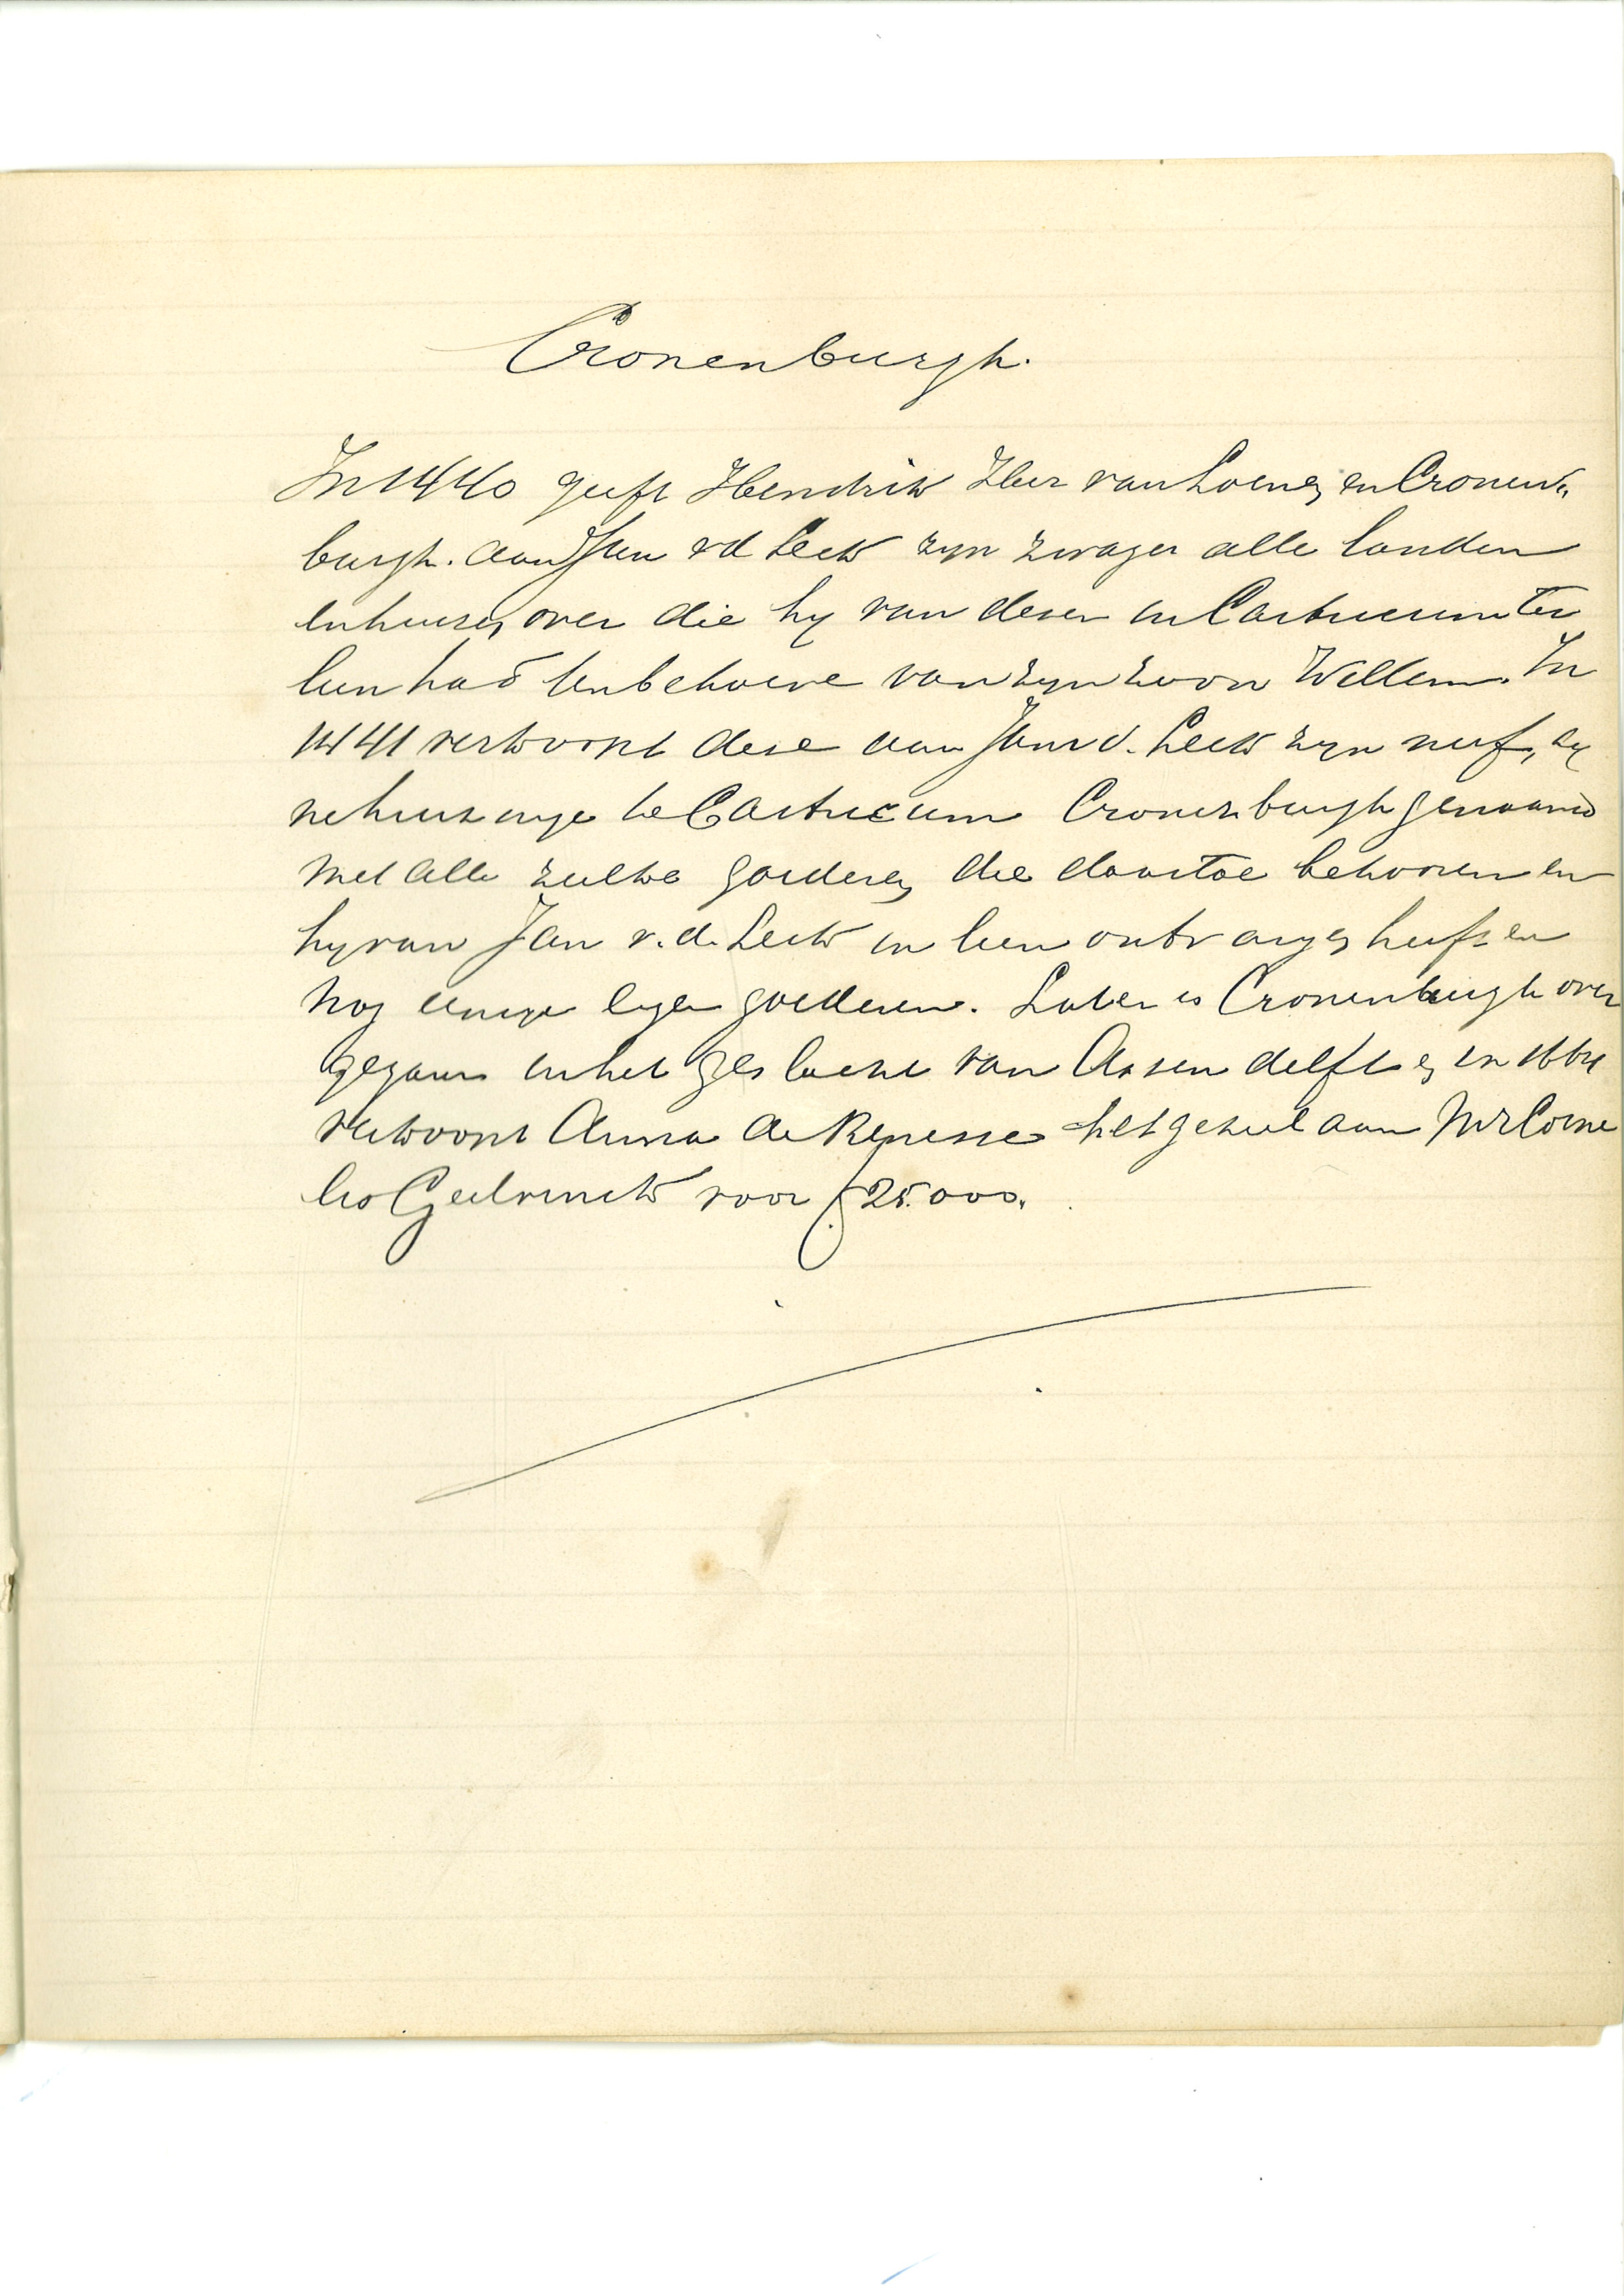 Cronenburgh.
In 1440 geeft Hendrik Heer van Loenen en Cronen„
burgh. aan Jan vd Leck zyn zwager alle landen
en huizen over die hy van dezen in Castricum ter
leen had ten behoeve van zyn zoon Willem. In
1441 verkoopt deze aan Jan v. d. Leck zyn neef, zy
ne huizinge te Castricum Cronenburgh genaamd
met alle zulke goederen die daartoe behooren en
hy van Jan v. d. Leck in leen ontvangen heeft en
nog eenige eigen goederen. Later is Cronenburgh over
gegaan in het geslacht van Assendelft en in 1664
verkoopt Anna de Renesse het geheel aan Mr Corne
lis Geelvinck voor f 25.000.